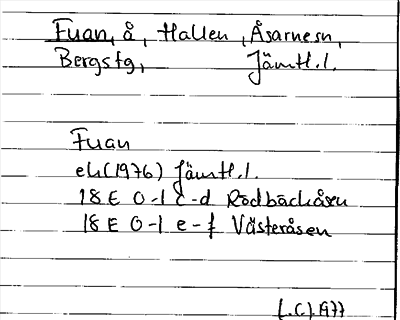 Fuan, å, Hallen, Åsarnesn,
Bergsfg, Jämtl.l.
Fuan
ek(1976) Jämtl.l.
18 E 0-1 c-d Rödbäckåsen
18 E 0-1 e-f Västeråsen
1977